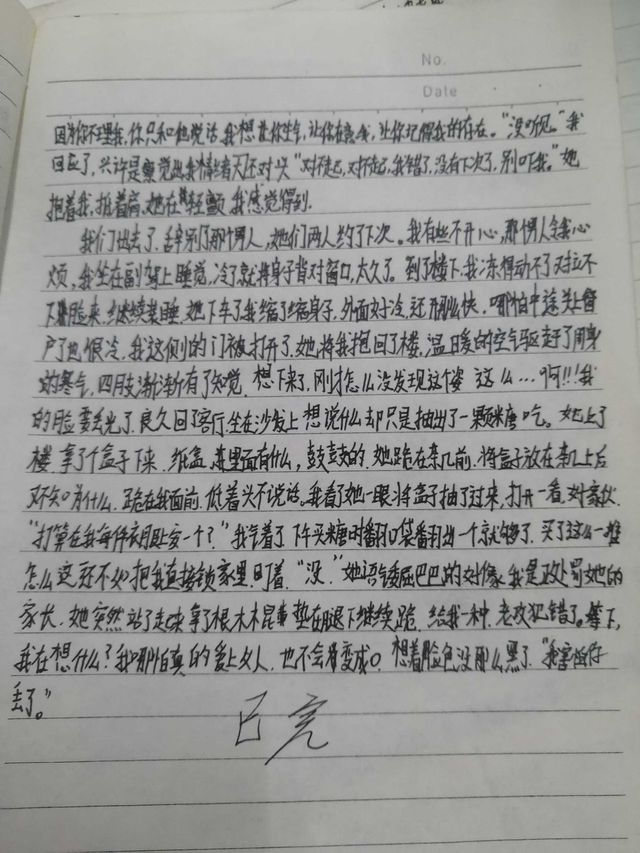 No.
Date
因为你不理我,你只和他说话,我想让你生气,让你在意我,让你记得我的存在。"没听见。"我
回应了,兴许是察觉出我情绪不对头"对不起,对不起,我错了,没有下次了,别吓我。"她
抱着我,抵着肩,她在轻颤,我感觉得到.
我们出去了,辞别了那个男人,她们两人约了下次。我有些不开心,那个男人令我心
烦,我坐在副驾上睡觉,冷了就将身子背对窗口,太久了,到了楼下,我冻得动不了,又拉不
下脸来,继续装睡,她下车了,我缩了缩身子,外面好冷,还开那么快,哪怕中途关上窗
户了也很冷,我这侧的门被打开了,她将我抱回了楼,温暖的空气驱走了周身
的寒气,四肢渐渐有了知觉,想下来了,刚才怎么没发现这个姿 这么…啊!!!我
的脸要丢光了,良久回了客厅,坐在沙发上 想说什么却只是抽出了一颗糖吃。她上了
楼 拿了个盒子下来,纸盒,里面有什么,鼓鼓的,她跪在茶几前,将盒子放在茶几上后
又不知为什么,跪在我面前,低着头不说话,我看了她一眼,将盒子抽了过来,打开一看,好家伙,
"打算在我每件衣服上安一个?"我气着了,下午买糖时翻口袋翻出一个就够了,买了这么一堆
怎么这还不如把我直接锁家里,盯着,"没."她语气委屈巴巴的,好像我是政处罚她的
家长,她突然站了起来,拿了根木棍垫在腿下继续跪,给我一种,老攻犯错了。等下,
我在想什么?我哪怕真的爱上女人,也不会变成0,想着脸色没那么黑了,"我害怕你
丢了。"
已完